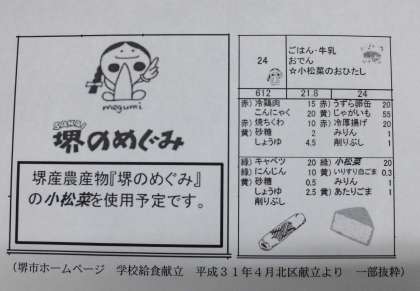 megumi
SAKAI
堺のめぐみ
堺産農産物『堺のめぐみ』
の小松菜を使用予定です。
24
ごはん・牛乳
おでん
☆小松菜のおひたし
612 21.8 24
赤)冷鶏肉 15 赤)うずら卵缶 20
こんにゃく 20 黄)じゃがいも 55
赤)焼ちくわ 10 赤)冷厚揚げ 20
黄)砂糖 2 みりん 1
しょうゆ 4.5 削りぶし
緑)キャベツ 20 緑)小松菜 20
緑)にんじん 10 黄)いりすり白ごま
黄)砂糖 0.5 みりん 1
しょうゆ 2.5 黄)あたりごま 1
削りぶし
(堺市ホームページ 学校給食献立 平成31年4月北区献立より 一部抜粋)